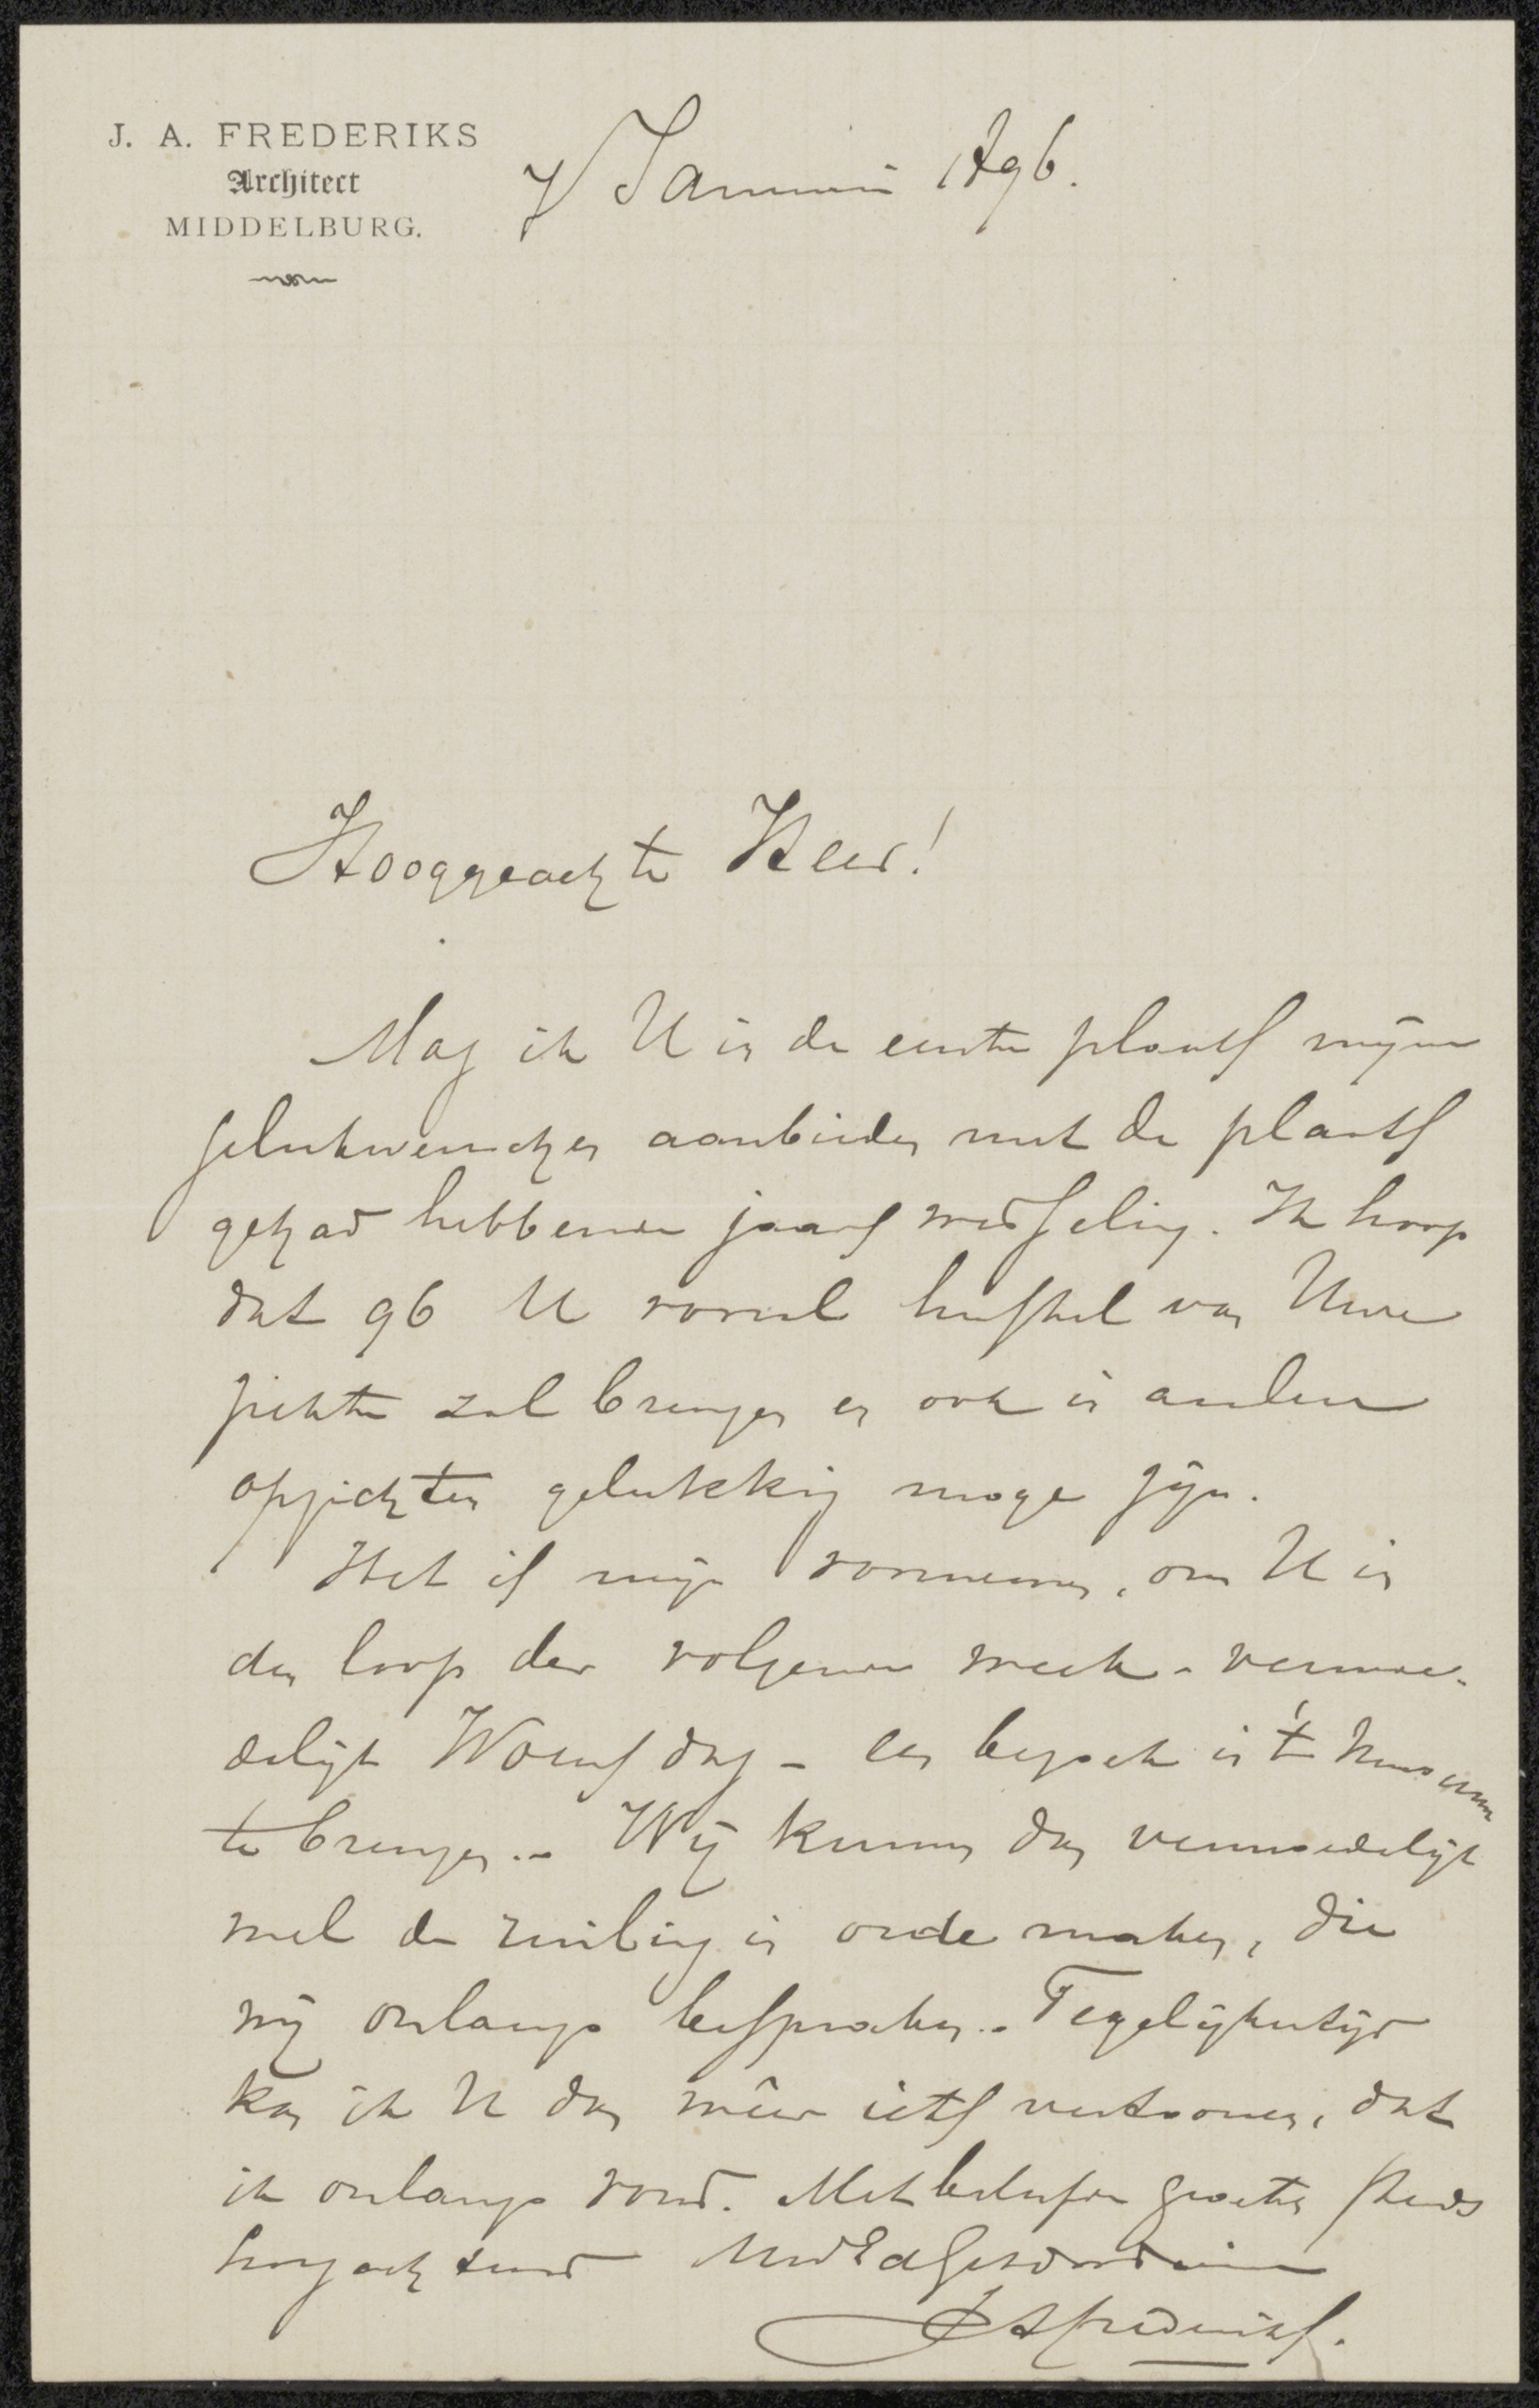 J. A. FREDERIKS
Architect
MIDDELBURG.
7 Januari 1896.
Hooggeachte Heer!
Mag ik U in de eerste plaats mijne
gelukwenschen aanbieden met de plaats
gehad hebbende jaarswisseling. Ik hoop
dat 96 U vooral herstel van Uwe
ziekte zal brengen en ook in andere
opzichten gelukkig moge zijn.
Het is mijn voornemen, om U in
den loop der volgende week - vermoe-
delijk Woensdag - een bezoek in 't Museum
te brengen. - Wij kunnen dan vermoedelijk
wel de ruiling in orde maken, die
wij onlangs bespraken. - Tegelijkertijd
kan ik U dan weêr iets vertoonen, dat
ik onlangs vond. Met beleefde groeten steeds
hoogachtend UwEdGes
JAFrederiks.